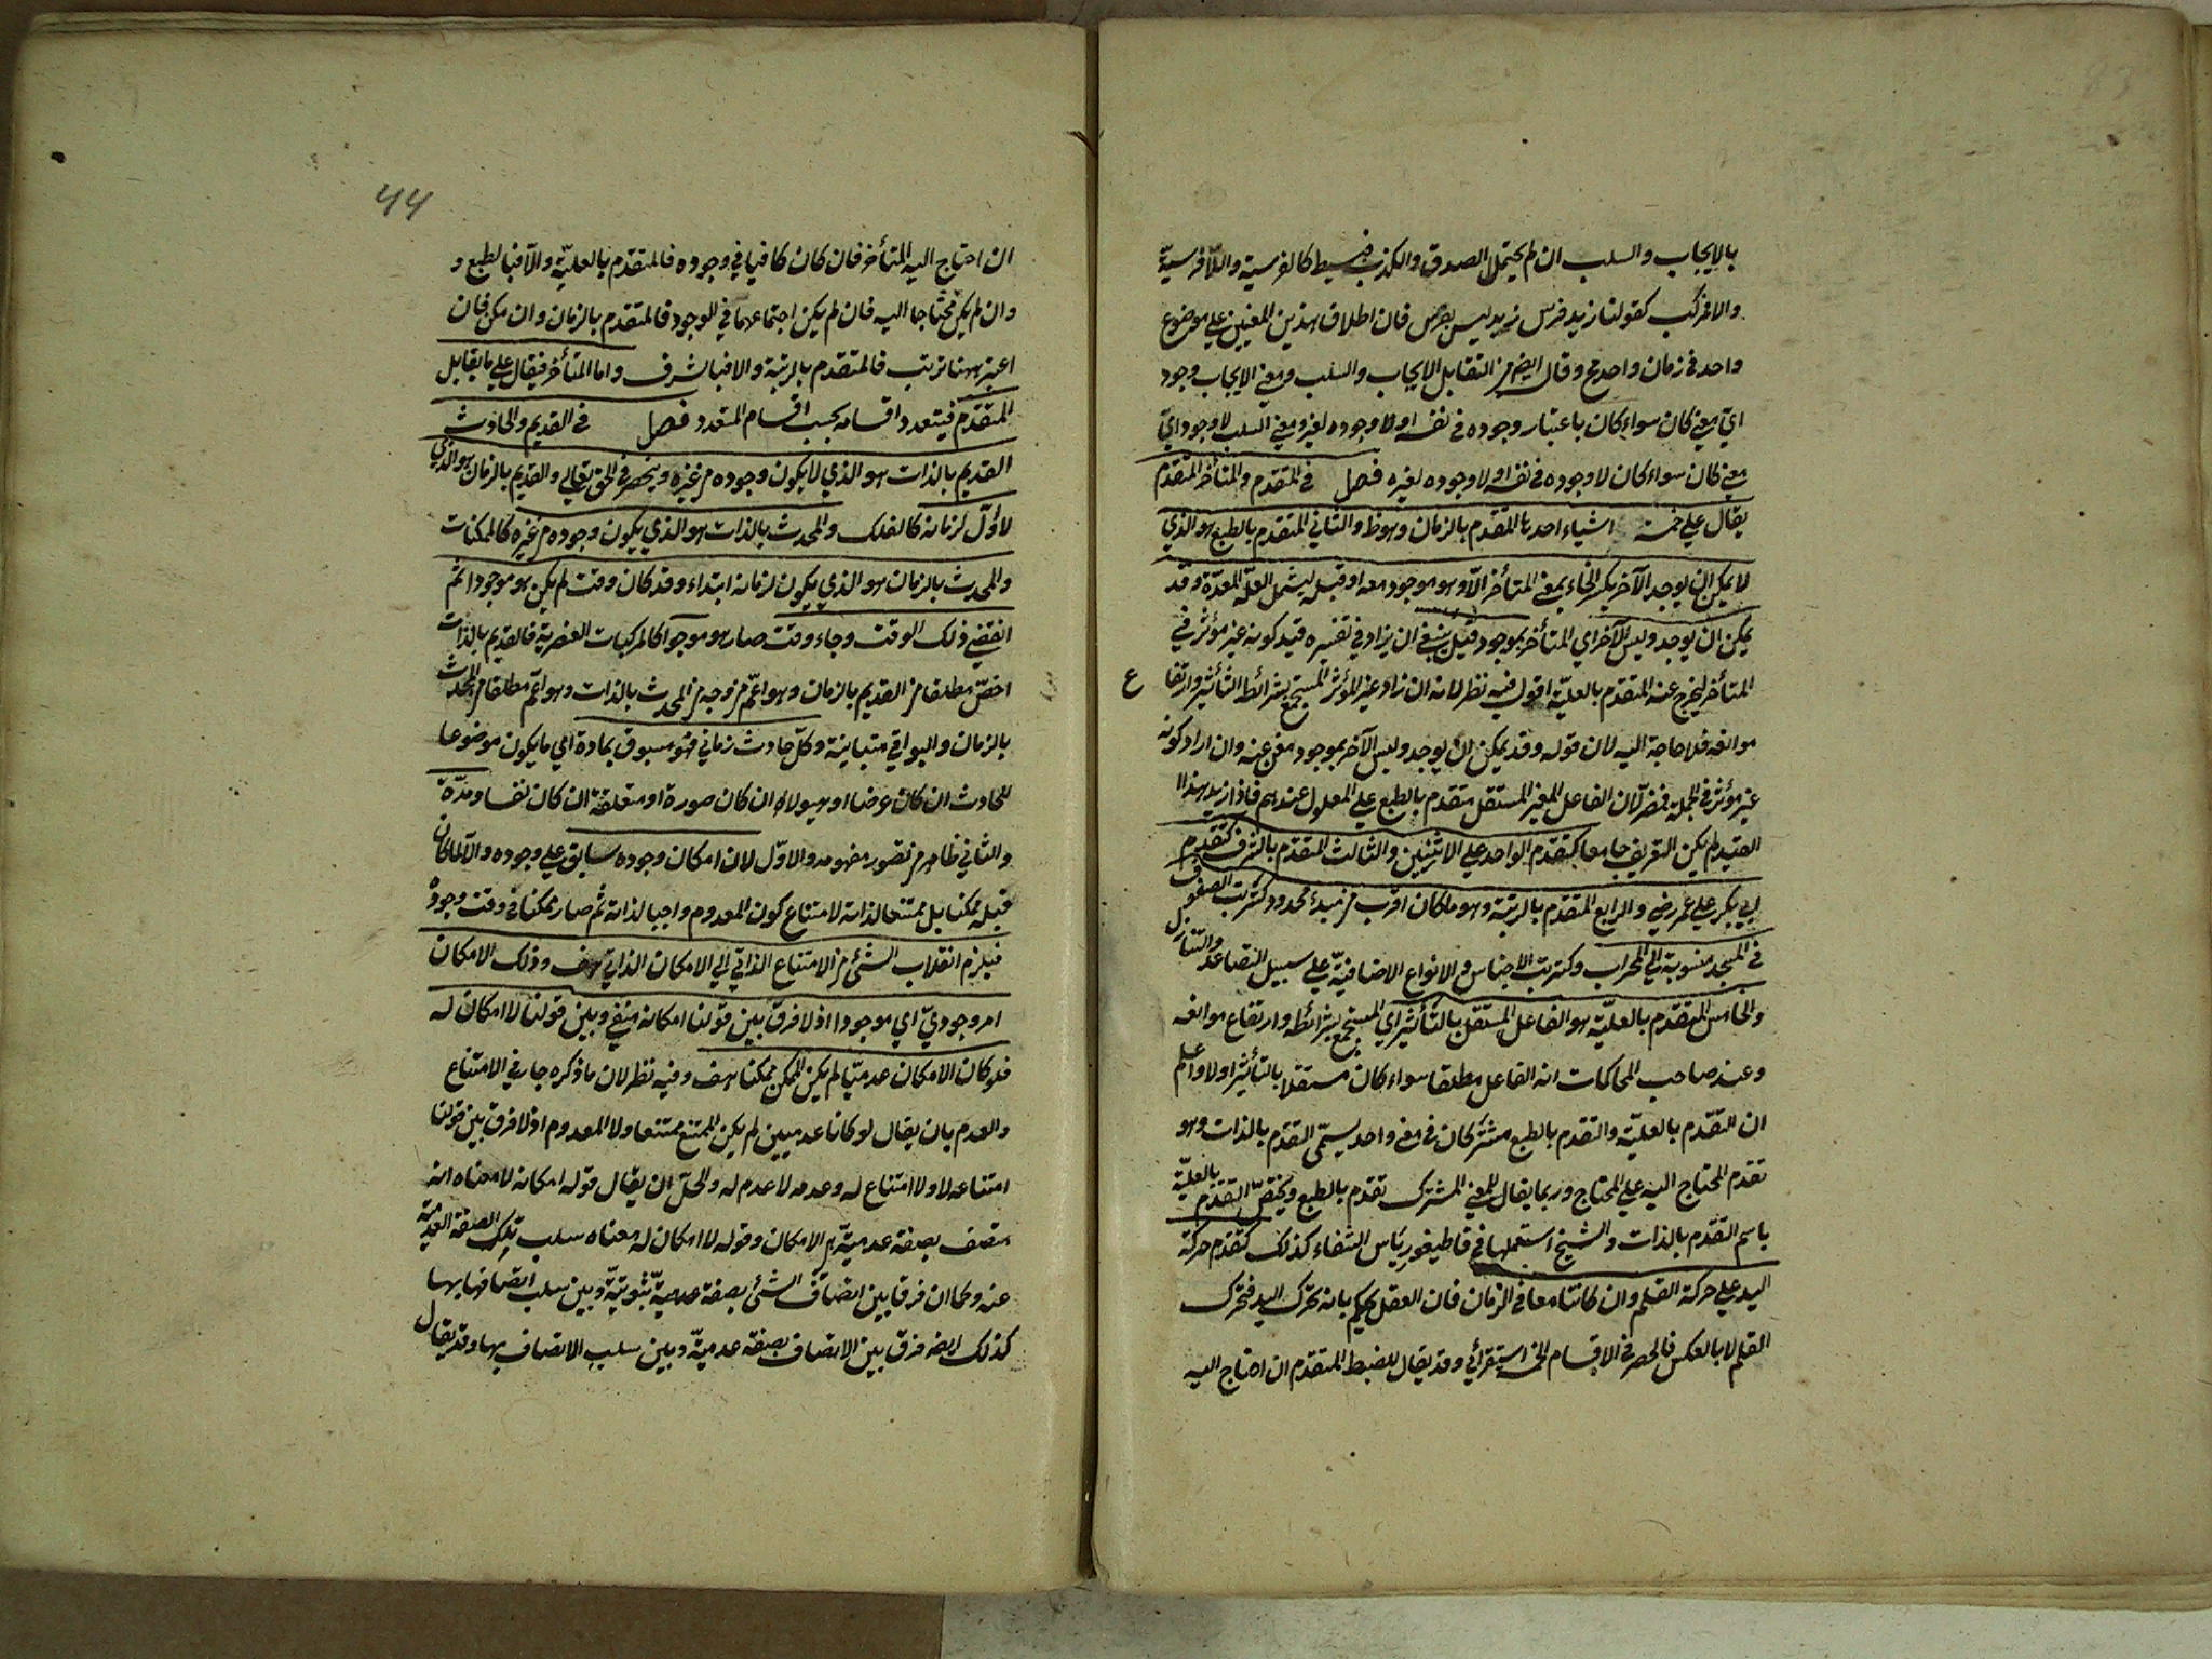 بالايجاب والسلب ان لم يحتمل الصدق والكذب فبسيط كالفرسية واللافرسية
والا فمركب كقولنا زيد فرس زيد ليس بفرس فان اطلاق هذين المعنيين علي موضوع
واحد في زمان واحد مح وقال ايضم من التقابل الايجاب والسلب ومعني الايجاب وجود
ايّ معني كان سواء كان باعتبار وجوده في نفسه او لا وجوده لغيره ومعني السلب لا وجود ايّ
معني كان سواء كان لا وجوده في نفسه او لا وجوده لغيره فصل في المتقدم والمتأخر المتقدم
يقال علي خمسة اشياء احدها المتقدم بالزمان وهو ظ والثاني المتقدم بالطبع هو الذي
لا يمكن ان يوجد الآخر بكسر الخاء بمعني المتأخر الّا وهو موجود معه او قبله ليشمل العلّة المعدّة وقد
يمكن ان يوجد وليس الآخر اي المتأخر بموجود قيل ينبغي ان يزاد في تفسيره قيد كونه غير مؤثر في
المتأخر ليخرج عنه المتقدم بالعليّة اقول فيه نظر لانه ان زاد غير المؤثر المستجمع بشرائط التأثير وارتفاع
موانعه فلا حاجة اليه لان قوله وقد يمكن ان يوجد وليس الآخر بموجود مغن عنه وان اراد كونه
غير مؤثر في الجملة فمضر لان الفاعل الغير المستقل متقدم بالطبع علي المعلول عندهم فاذا زيد هذا
القيد لم يكن التعريف جامعا كتقدم الواحد علي الاثنين والثالث المتقدم بالشرف كتقدم
ابي بكر علي عمر رضي والرابع المتقدم بالرتبة وهو ما كان اقرب من مبدء محدود كترتب الصفوف
في المسجد منسوبة الي المحراب وكترتب الاجناس والانواع الاضافيّة علي سبيل التصاعد والتنازل
والخامس المتقدم بالعليّة هو الفاعل المستقل بالتأثير اي المستجمع بشرائطه وارتفاع موانعه
وعند صاحب المحاكمات انه الفاعل مطلقا سواء كان مستقلا بالتأثير اولا واعلم
ان التقدم بالعليّة والتقدم بالطبع مشتركان في معني واحد يسمّي التقدم بالذات وهو
تقدم المحتاج اليه علي المحتاج وربما يقال للمعني المشترك تقدم بالطبع ويختصّ التقدم بالعليّة
باسم التقدم بالذات والشيخ استعملها في قاطيغورياس الشفاء كذلك كتقدم حركة
اليد علي حركة القلم وان كانتا معا في الزمان فان العقل يحكم بانه تحرك اليد فتحرك
القلم لا بالعكس فالحصر في الاقسام الخمسة استقرائي وقد يقال للضبط المتقدم ان احتاج اليه
ان احتاج اليه المتأخر فان كان كافيا في وجوده فالمتقدم بالعليّة والا فبالطبع و
وان لم يكن محتاجا اليه فان لم يكن اجتماعهما في الوجود فالمتقدم بالزمان وان مكن فان
اعتبر بينهما ترتب فالمتقدم بالرتبة والا فبالشرف واما المتأخر فيقال علي ما يقابل
المتقدم فيتعدد اقسامه بحسب اقسام المتعدد فصل في القديم والحادث
القديم بالذات هو الذي لا يكون وجوده من غيره وينحصر في الحق تعالي والقديم بالزمان هو الذي
لا اوّل لزمانه كالفلك والمحدث بالذات هو الذي يكون وجوده من غيره كالممكنات
والمحدث بالزمان هو الذي يكون لزمانه ابتداء وقد كان وقت لم يكن هو موجودا ثم
انقضي ذلك الوقت وجاء وقت صار هو موجودا كالمركبات العنصرية فالقديم بالذات
اخصّ مطلقا من القديم بالزمان وهو اعمّ من وجه من المحدث بالذات وهو اعمّ مطلقا من المحدث
بالزمان والبواقي متباينة وكلّ حادث زماني فهو مسبوق بمادة اي ما يكون موضوعا
للحادث ان كان عرضا او هيولاه ان كان صورة او متعلقة ان كان نفسا ومدّة
والثاني ظاهر من تصور مفهومه والاوّل لان امكان وجوده سابق علي وجوده والا لما كان
قبله ممكنا بل ممتنعا لذاته لامتناع كون المعدوم واجبا لذاته ثم صار ممكنا في وقت وجوده
فيلزم انقلاب الشئ من الامتناع الذاتي الي الامكان الذاتي هف وذلك الامكان
امر وجوديّ اي موجودا اذ لا فرق بين قولنا امكانه منفي وبين قولنا لا امكان له
فلو كان الامكان عدميّا لم يكن الممكن ممكنا هف وفيه نظر لان ما ذكره جار في الامتناع
والعدم بان يقال لو كانا عدميين لم يكن الممتنع ممتنعا ولا المعدوم اذ لا فرق بين قولنا
امتناعه لا ولا امتناع له وعدمه لا عدم له والحلّ ان يقال قوله امكانه لا معناه انه
متصف بصفة عدميّة هي الامكان وقوله لا امكان له معناه سلب تلك الصفة العدمية
عنه وكما ان فرقا بين اتصاف الشئ بصفة عدميّة ثبوتيّة وبين سلب اتصافها بها
كذلك ايضه فرق بين الاتصاف بصفة عدميّة وبين سلب الاتصاف بها وقد يقال